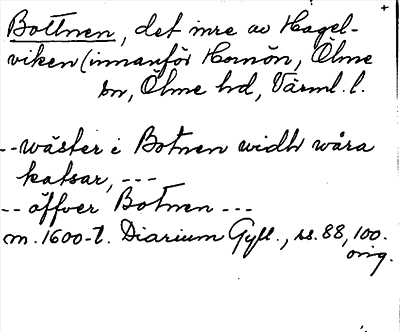 Bottnen, det inre av Hagel-
viken (innanför Homön, Ölme
sn, Ölme hd, Värml. l.
-- wäster i Botnen widh wåra
katsar, ---
-- öffver Botnen ---
m. 1600-t. Diarium Gyll., ss. 88, 100.
orig.